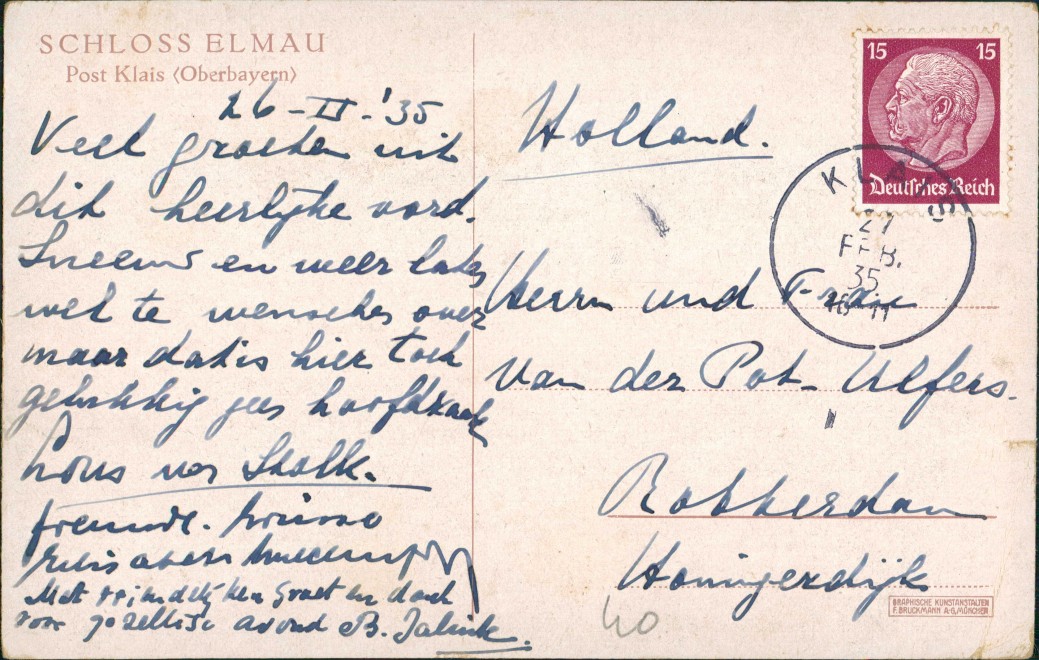 SCHLOSS ELMAU
Post Klais (Oberbayern)
26-II-'35
Veel groeten uit
dit heerlijke oord.
Sneeuw en weer laten
wel te wenschen over
maar dat is hier toch
gelukkig geen hoofdzaak
van Stolk.
freundl. Grüsse
Met vriendelijken Groet en dank
voor gezellige avond B. Jalink.
Holland.
Herrn und Frau
Van der Pot-Ulfers.
Rotterdam
Honingerdijk
15 15
Deutsches Reich
KLAIS
27
FEB.
35
GRAPHISCHE KUNSTANSTALTEN
F. BRUCKMANN A-G, MÜNCHEN
40